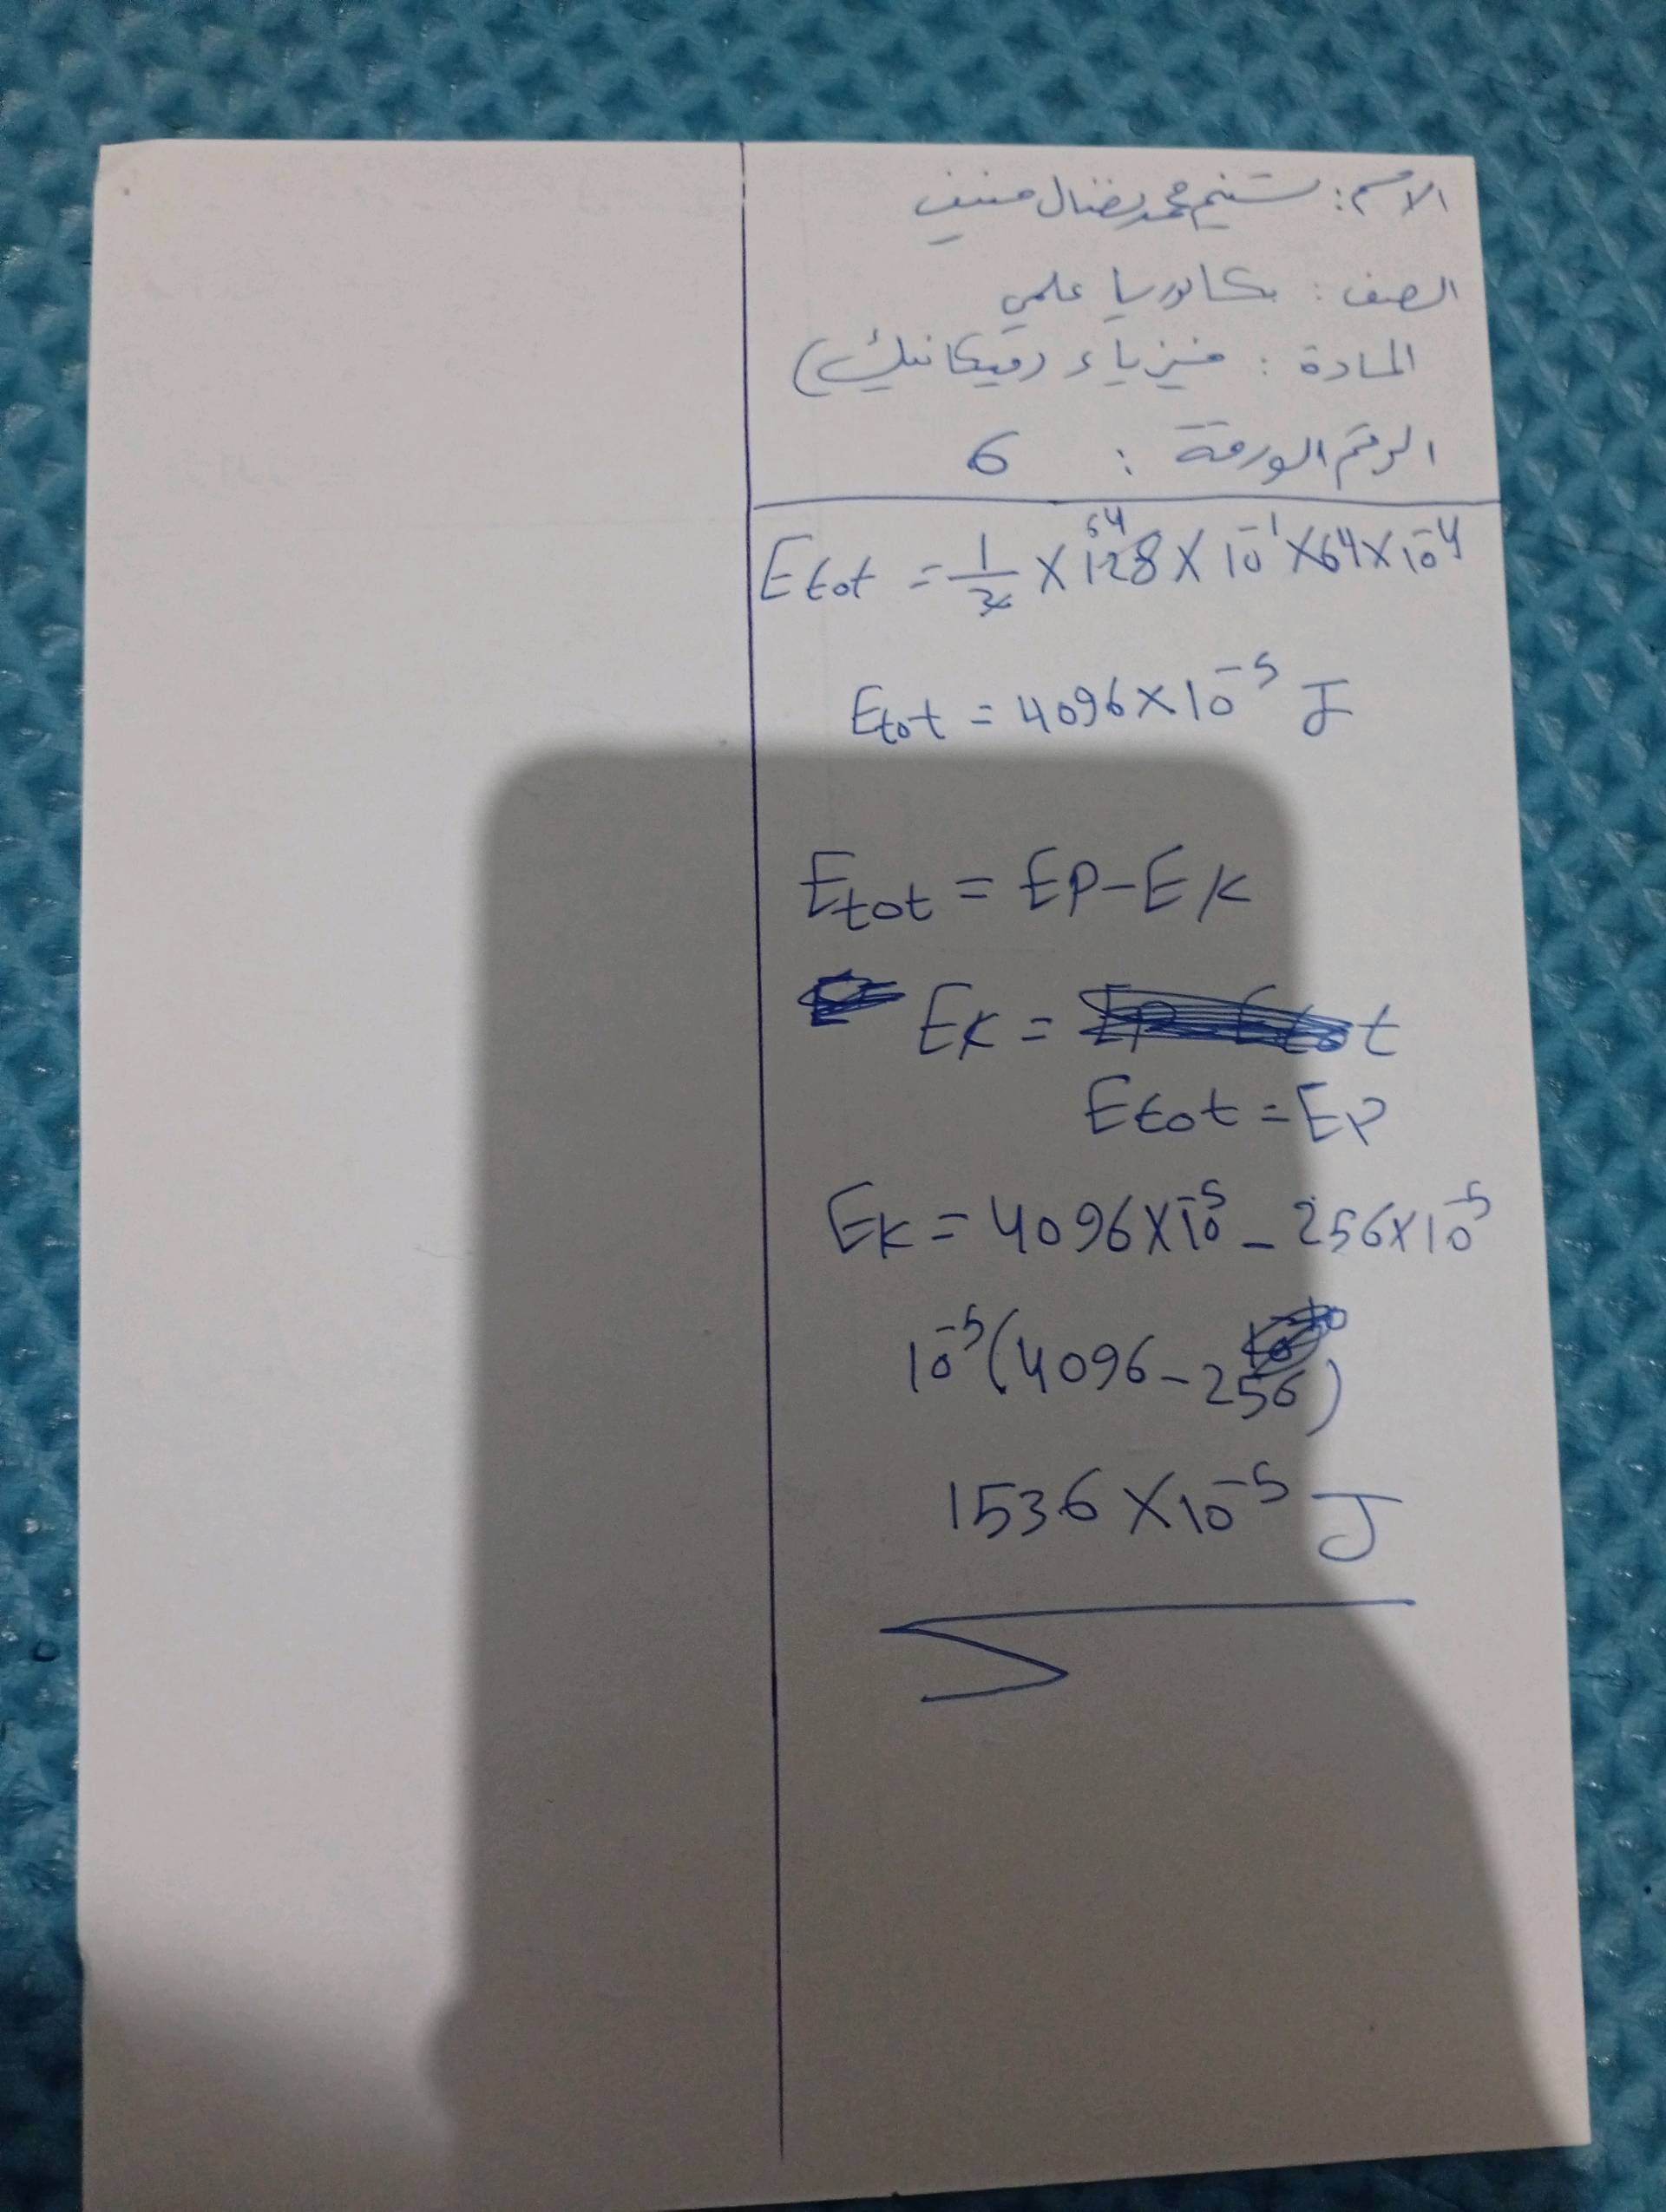 الاسم: تسنيم محمد نضال منيف
الصف: بكالوريا علمي
المادة: فيزياء (ميكانيك)
الرقم الورقة: 6
Etot = 1/2 × 128 × 10^-1 × 64 × 10^-4
64
Etot = 4096 × 10^-5 J
Etot = EP - EK
EK =
Etot = EP
EK = 4096 × 10^-5 - 256 × 10^-5
10^-5 (4096 - 256)
1536 × 10^-5 J